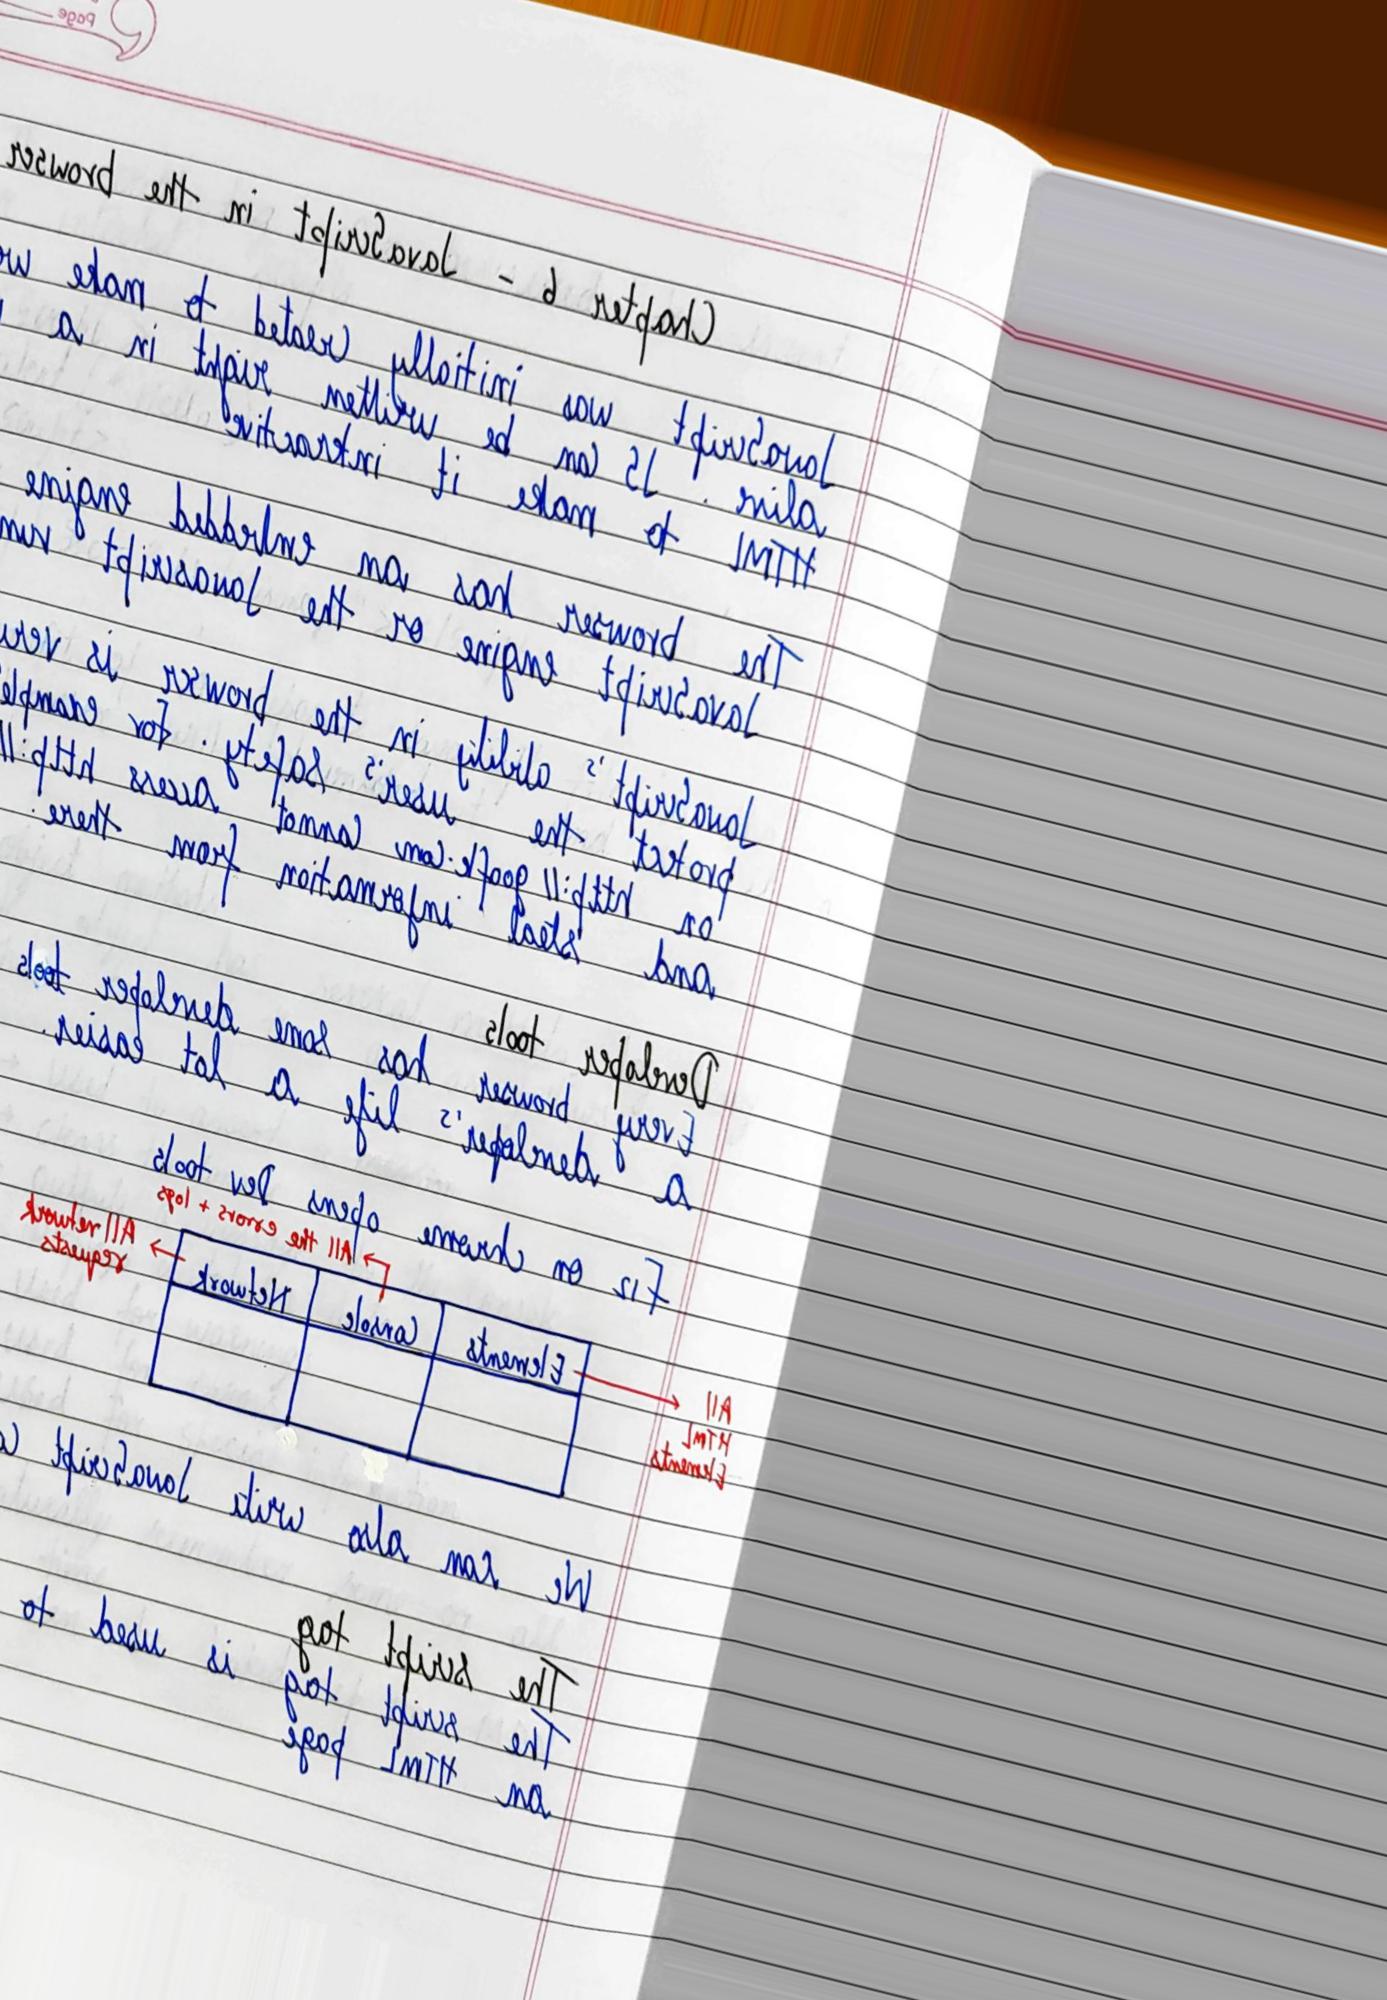 Page
Chapter 6 - JavaScript in the browser
JavaScript was initially created to make
alive. JS can be written right in a
HTML to make it interactive
The browser has an embedded engine
JavaScript engine or the Javascript run
JavaScript's ability in the browser is very
protect the user's safety. for example
on http://google.com cannot access http://
and steal information from there.
Developer tools
Every browser has some developer tools
a developer's life a lot easier.
F12 on chrome opens Dev tools
All the errors + logs
All network
requests
Elements Console Network
All
HTML
Elements
We can also write JavaScript
The script tag
The script tag is used to
an HTML page